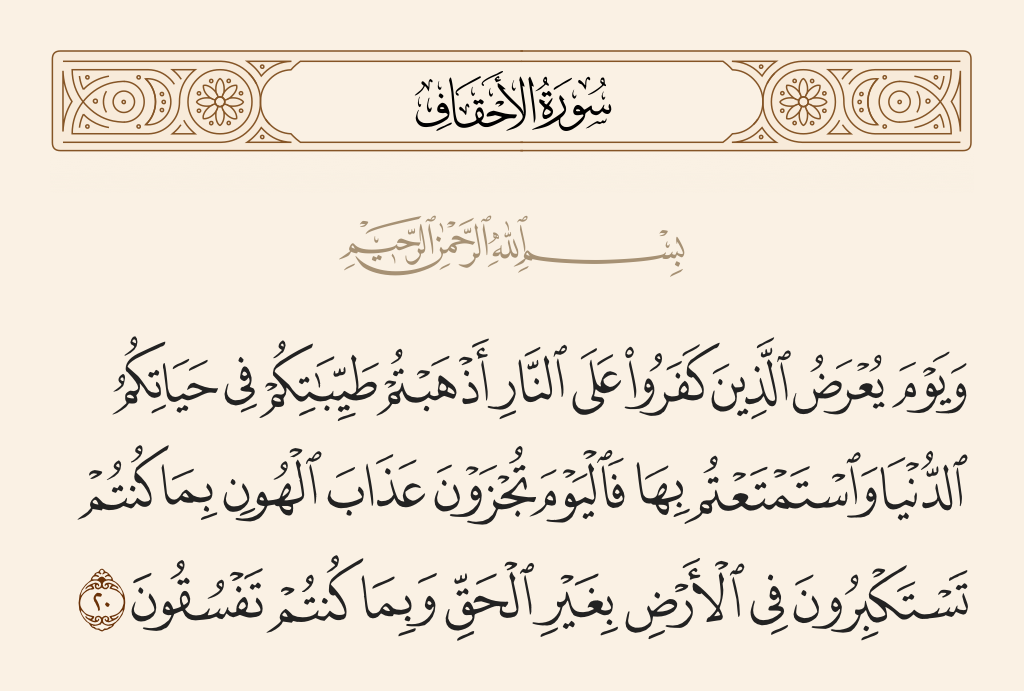 سُورَةُ الأَحْقَافِ
بِسْمِ ٱللَّهِ ٱلرَّحْمَٰنِ ٱلرَّحِيمِ
وَيَوْمَ يُعْرَضُ ٱلَّذِينَ كَفَرُوا۟ عَلَى ٱلنَّارِ أَذْهَبْتُمْ طَيِّبَـٰتِكُمْ فِى حَيَاتِكُمُ
ٱلدُّنْيَا وَٱسْتَمْتَعْتُم بِهَا فَٱلْيَوْمَ تُجْزَوْنَ عَذَابَ ٱلْهُونِ بِمَا كُنتُمْ
تَسْتَكْبِرُونَ فِى ٱلْأَرْضِ بِغَيْرِ ٱلْحَقِّ وَبِمَا كُنتُمْ تَفْسُقُونَ ٢٠